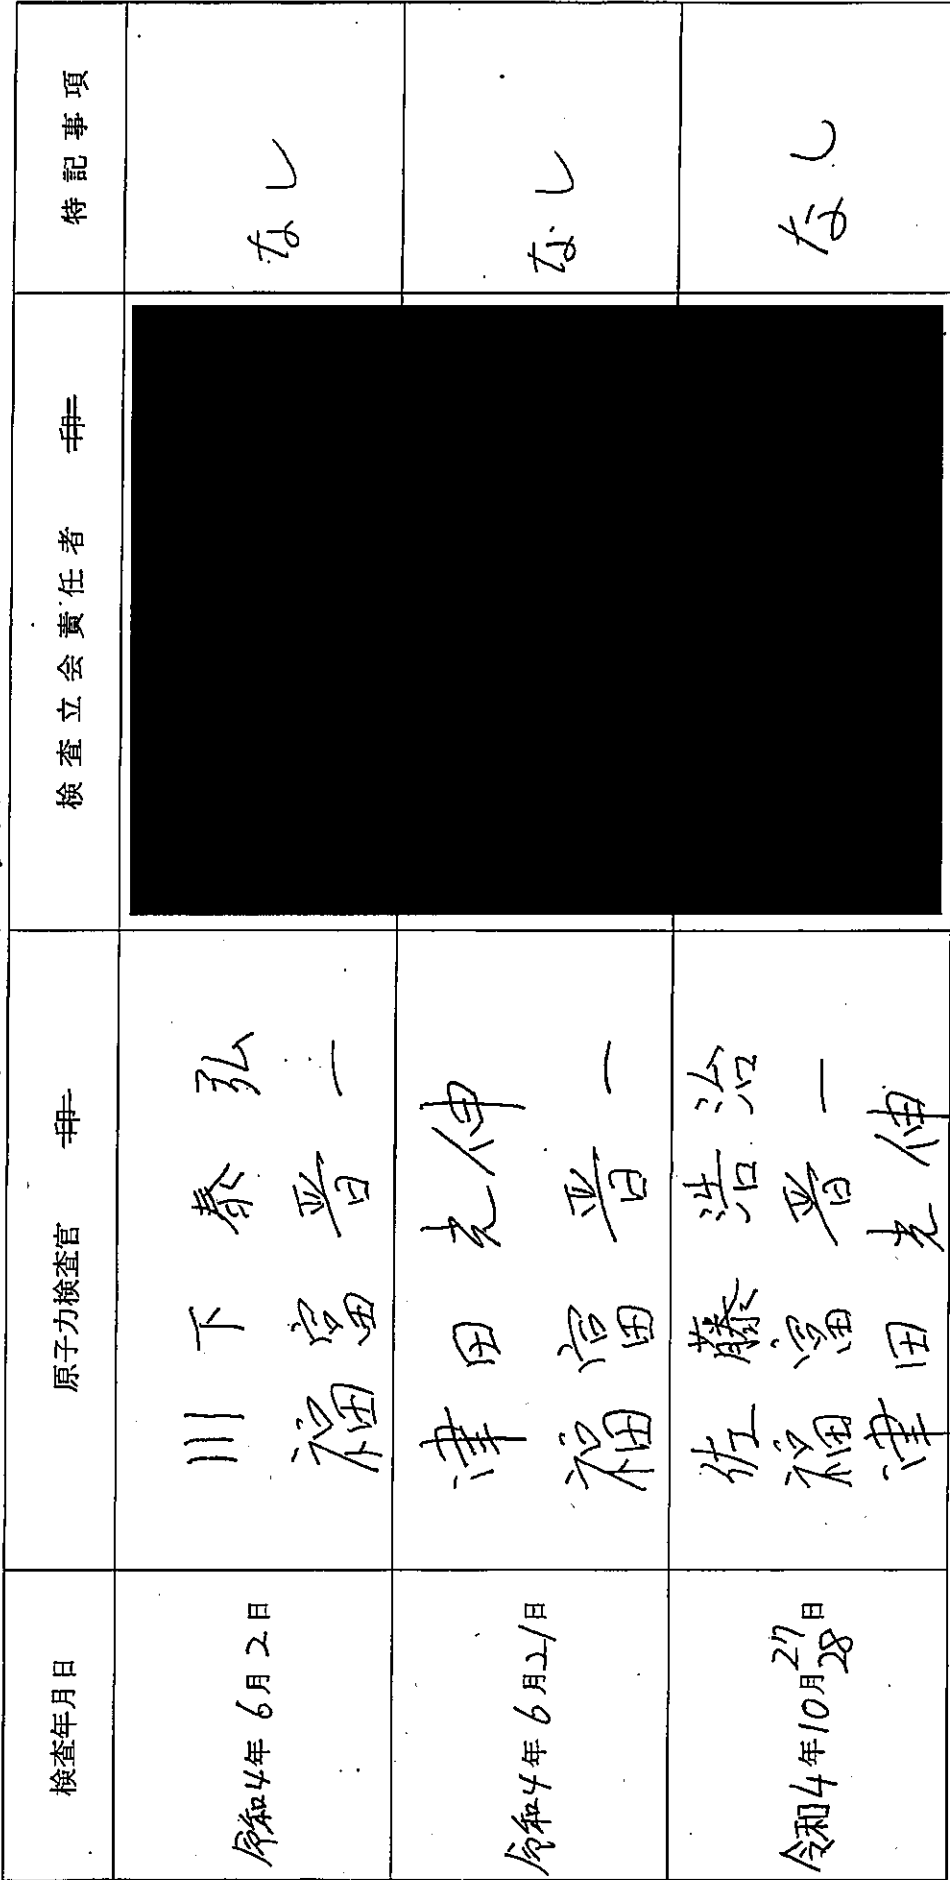 検査年月日
原子力検査官
検査立会責任者
特記事項
令和4年6月2日
川下泰弘
福冨晋一
なし
令和4年6月21日
津田
福冨晋一
なし
令和4年10月27日
28
佐藤浩治
福冨晋一
津田
なし